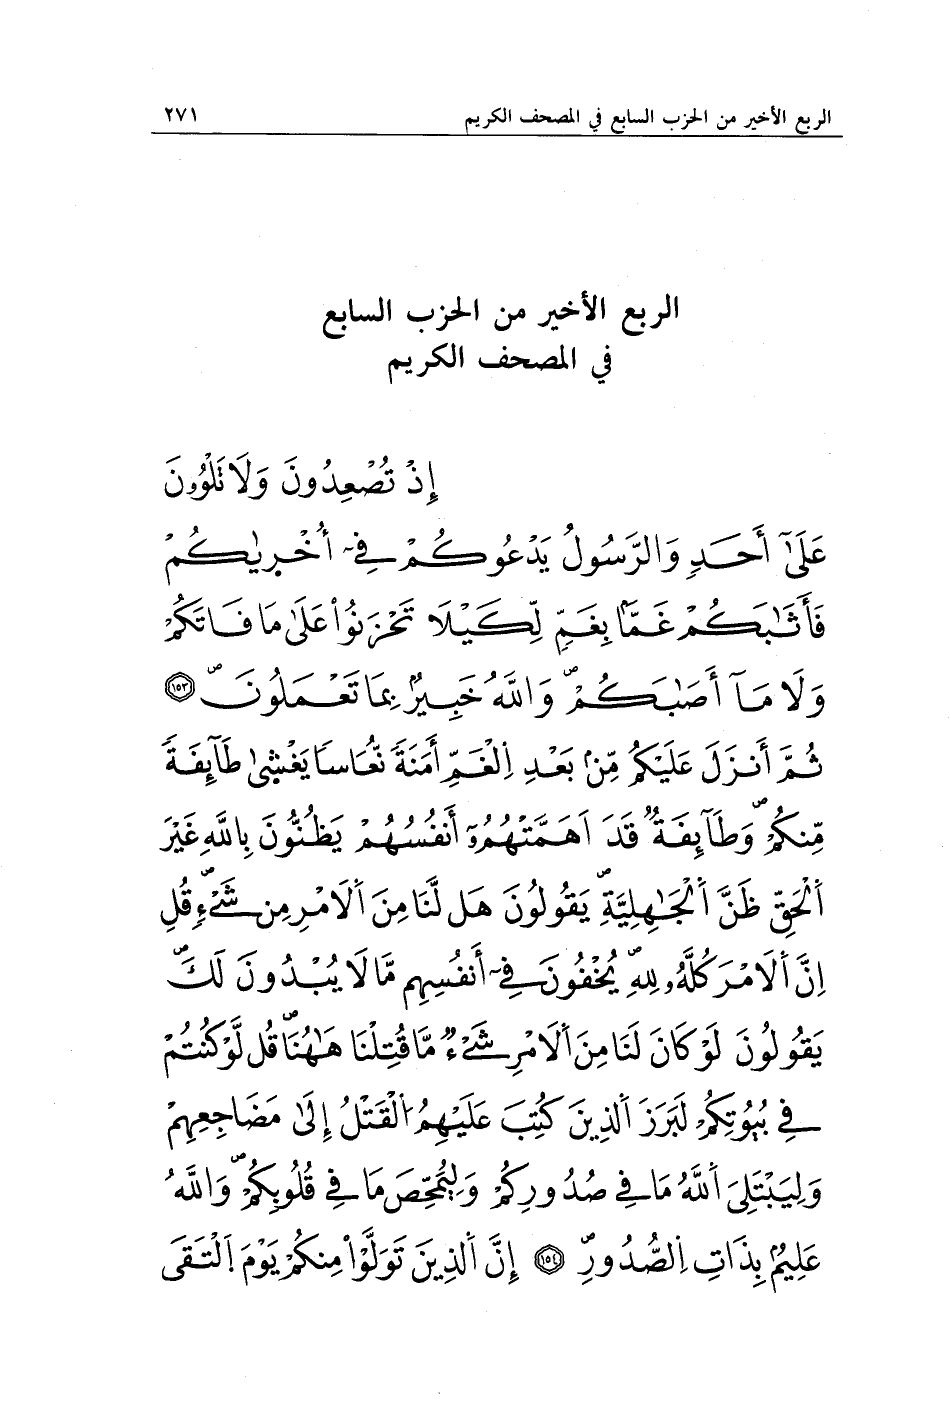 الربع الأخير من الحزب السابع في المصحف الكريم ٢٧١
الربع الأخير من الحزب السابع
في المصحف الكريم
إِذْ تُصْعِدُونَ وَلَا تَلْوُۥنَ
عَلَىٰٓ أَحَدٍ وَالرَّسُولُ يَدْعُوكُمْ فِےٓ أُخْر۪يٰكُمْ
فَأَثَٰبَكُمْ غَمّاَۢ بِغَمٍّ لِّكَيْلَا تَحْزَنُواْ عَلَىٰ مَا فَاتَكُمْ
وَلَا مَآ أَصَٰبَكُمْ وَاللَّهُ خَبِيرُۢ بِمَا تَعْمَلُونَ ١٥٣
ثُمَّ أَنزَلَ عَلَيْكُم مِّنۢ بَعْدِ اِ۬لْغَمِّ أَمَنَةً نُّعَاساً يَغْش۪يٰ طَآئِفَةً
مِّنكُمْ وَطَآئِفَةٌ قَدَ اَهَمَّتْهُمُۥٓ أَنفُسُهُمْ يَظُنُّونَ بِاللَّهِ غَيْرَ
اَ۬لْحَقِّ ظَنَّ اَ۬لْجَٰهِلِيَّةِ يَقُولُونَ هَل لَّنَا مِنَ اَ۬لَامْرِ مِن شَےْءٍ قُلِ
اِنَّ اَ۬لَامْرَ كُلَّهُۥ لِلهِ يُخْفُونَ فِےٓ أَنفُسِهِم مَّا لَا يُبْدُونَ لَكَ
يَقُولُونَ لَوْ كَانَ لَنَا مِنَ اَ۬لَامْرِ شَےْءٌ مَّا قُتِلْنَا هَٰهُنَا قُل لَّوْ كُنتُمْ
فِے بُيُوتِكُمْ لَبَرَزَ اَ۬لذِينَ كُتِبَ عَلَيْهِمُ اُ۬لْقَتْلُ إِلَىٰ مَضَاجِعِهِمْ
وَلِيَبْتَلِيَ اَ۬للَّهُ مَا فِے صُدُورِكُمْ وَلِيُمَحِّصَ مَا فِے قُلُوبِكُمْ وَاللَّهُ
عَلِيمُۢ بِذَاتِ اِ۬لصُّدُورِ ١٥٤ إِنَّ اَ۬لذِينَ تَوَلَّوْاْ مِنكُمْ يَوْمَ اَ۬لْتَقَى